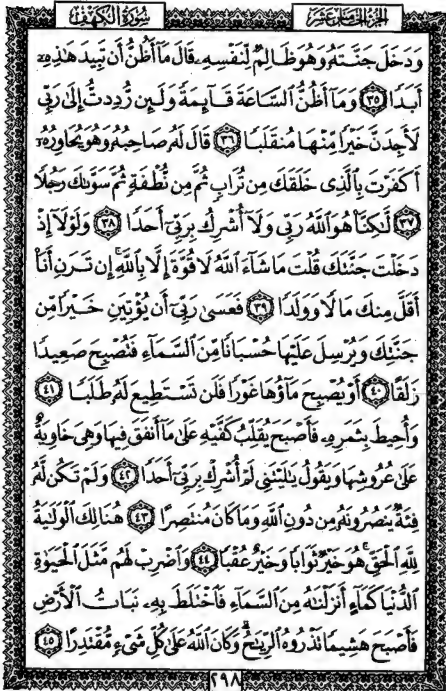 سُورَةُ الكَهْفِ
الجُزْءُ الخَامِسَ عَشَرَ
وَدَخَلَ جَنَّتَهُۥ وَهُوَ ظَالِمٌ لِّنَفْسِهِۦ قَالَ مَآ أَظُنُّ أَن تَبِيدَ هَٰذِهِۦٓ
أَبَدًا ٣٥ وَمَآ أَظُنُّ ٱلسَّاعَةَ قَآئِمَةً وَلَئِن رُّدِدتُّ إِلَىٰ رَبِّى
لَأَجِدَنَّ خَيْرًا مِّنْهَا مُنقَلَبًا ٣٦ قَالَ لَهُۥ صَاحِبُهُۥ وَهُوَ يُحَاوِرُهُۥٓ
أَكَفَرْتَ بِٱلَّذِى خَلَقَكَ مِن تُرَابٍ ثُمَّ مِن نُّطْفَةٍ ثُمَّ سَوَّىٰكَ رَجُلًا
٣٧ لَّٰكِنَّا۠ هُوَ ٱللَّهُ رَبِّى وَلَآ أُشْرِكُ بِرَبِّىٓ أَحَدًا ٣٨ وَلَوْلَآ إِذْ
دَخَلْتَ جَنَّتَكَ قُلْتَ مَا شَآءَ ٱللَّهُ لَا قُوَّةَ إِلَّا بِٱللَّهِ ۚ إِن تَرَنِ أَنَا۠
أَقَلَّ مِنكَ مَالًا وَوَلَدًا ٣٩ فَعَسَىٰ رَبِّىٓ أَن يُؤْتِيَنِ خَيْرًا مِّن
جَنَّتِكَ وَيُرْسِلَ عَلَيْهَا حُسْبَانًا مِّنَ ٱلسَّمَآءِ فَتُصْبِحَ صَعِيدًا
زَلَقًا ٤٠ أَوْ يُصْبِحَ مَآؤُهَا غَوْرًا فَلَن تَسْتَطِيعَ لَهُۥ طَلَبًا ٤١
وَأُحِيطَ بِثَمَرِهِۦ فَأَصْبَحَ يُقَلِّبُ كَفَّيْهِ عَلَىٰ مَآ أَنفَقَ فِيهَا وَهِىَ خَاوِيَةٌ
عَلَىٰ عُرُوشِهَا وَيَقُولُ يَٰلَيْتَنِى لَمْ أُشْرِكْ بِرَبِّىٓ أَحَدًا ٤٢ وَلَمْ تَكُن لَّهُۥ
فِئَةٌ يَنصُرُونَهُۥ مِن دُونِ ٱللَّهِ وَمَا كَانَ مُنتَصِرًا ٤٣ هُنَالِكَ ٱلْوَلَٰيَةُ
لِلَّهِ ٱلْحَقِّ ۚ هُوَ خَيْرٌ ثَوَابًا وَخَيْرٌ عُقْبًا ٤٤ وَٱضْرِبْ لَهُم مَّثَلَ ٱلْحَيَوٰةِ
ٱلدُّنْيَا كَمَآءٍ أَنزَلْنَٰهُ مِنَ ٱلسَّمَآءِ فَٱخْتَلَطَ بِهِۦ نَبَاتُ ٱلْأَرْضِ
فَأَصْبَحَ هَشِيمًا تَذْرُوهُ ٱلرِّيَٰحُ ۗ وَكَانَ ٱللَّهُ عَلَىٰ كُلِّ شَىْءٍ مُّقْتَدِرًا ٤٥
٢٩٨